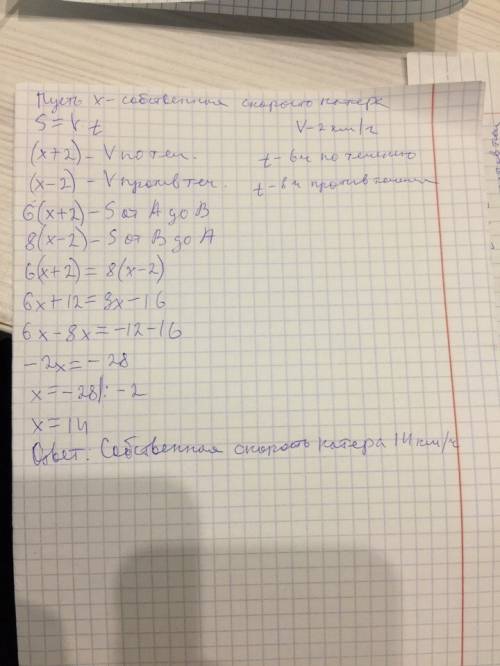 Пусть x - собственная скорость катера
S = V t V - 2 км/ч
(x+2) - V по теч. t - 6ч по течению
(x-2) - V против теч. t - 8ч против течения
6(x+2) - S от A до B
8(x-2) - S от B до A
6(x+2) = 8(x-2)
6x+12=8x-16
6x-8x=-12-16
-2x=-28
x=-28: -2
x=14
Ответ: Собственная скорость катера 14 км/ч